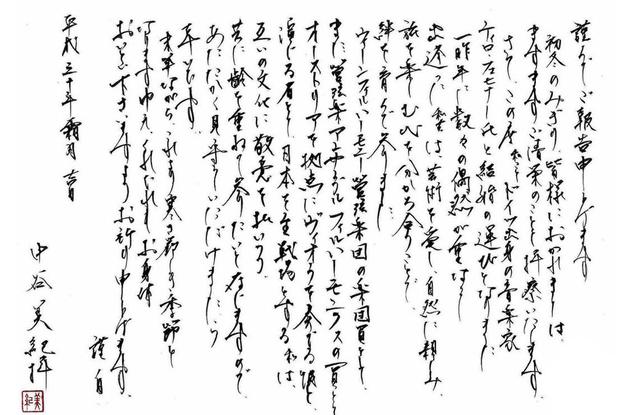 謹んでご報告申し上げます
初冬のみぎり 皆様におかれましては、
ますますご清栄のことと拝察いたします。
さて、この度 私ことドイツ出身の音楽家
ティロ・フェヒナー氏と結婚の運びとなりました
一昨年に数々の偶然が重なって
出逢った私達は、芸術を愛し、自然に親しみ、
旅を楽しむ心を分かち合うことで
絆を育んで参りました
ウィーンフィルハーモニー管弦楽団の楽団員として
また管弦楽アンサンブルフィルハーモニクスの一員として
オーストリアを拠点にヴィオラを奏でる彼と
演じる者として日本を主戦場とする私は、
互いの文化に敬意を払いつつ
共に齢を重ねて参りたいと存じますので
あたたかく見守っていただけましたら
幸いです。
末筆ながら、これより寒さ厳しき季節と
なりますゆえ、くれぐれもお身体
おいとい下さいますようお祈り申し上げます。
謹白
平成三十年霜月吉日
中谷美紀拝
美紀